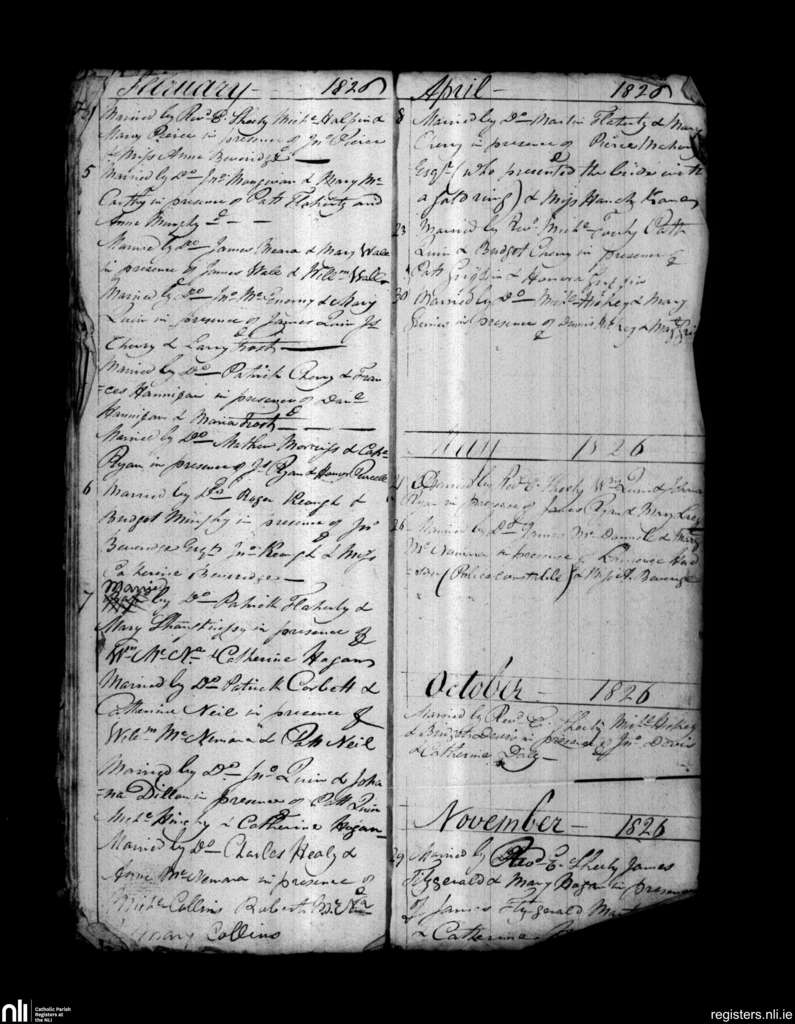 February — 1826
Married by Revd. E. Sheehy Michl. Halpin &
Mary Pierce in presence of Jno. Pierce
& Miss Anne Beveridge
5 Married by Do. Jno. & Mary Mc
Carthy in presence of Patt Flaherty and
Anne Murphy
Married by Do. James Meara & Mary Wall
in presence of James Wall & Willm. Wall
Married by Do. Jno. Mc Enerny & Mary
Quin in presence of James Quin Jas.
Cherry & Larry Frost
Married by Do. Patrick Cherry & Fran
=ces Hannifan in presence of Danl.
Hannifan & Maria Frost
Married by Do. Mathew & Cathe.
Ryan in presence of Jas. Ryan & Honor Purcell
6 Married by Do. Roger Keough &
Bridget Murphy in presence of Jno.
Beveridge Esqr. Jno. Keough & Miss
Catherine Beveridge
Married
7 by Do. Patrick Flaherty &
Mary in presence of
Wm. Mc. Na. & Catherine Hogan
Married by Do. Patrick Corbett &
Catherine Neil in presence of
Willm. Mc Nemara & Patt Neil
Married by Do. Jno. Quin & Joha
=na Dillon in presence of Patt Quin
Michl. & Catherine Hogan
Married by Do. Charles Healy &
Anne Mc Nemara in presence of
Michl. Collins Robert Mc Na.
Mary Collins
April — 1826
8 Married by Do. Martin Flaherty & Mary
in presence of Pierce
Esqr. (who presented the bride with
a gold ring) & Miss
23 Married by Revd. Michl. Patk.
Quin & Bridget in presence of
Patt Griffin & Honora Griffin
30 Married by Do. Michl. Hickey & Mary
in presence of &
May 1826
21 Married by Revd. E. Sheehy Wm. Quin & Johana
Ryan in presence of James Ryan & Mary
26 Married by Do. James Mc Donnell & Mary
Mc Namara in presence of Lawrence
(Police constible) & Miss A. Beverege
October — 1826
Married by Revd. E. Sheehy Michl. Hickey
& Bridget Davis in presence of Jno. Davis
& Catherine Daly
November — 1826
29 Married by Revd. E. Sheehy James
Fitzgerald & Mary Hogan in presence
of James Fitzgerald
& Catherine
nli
Catholic Parish
Registers at
the NLI
registers.nli.ie